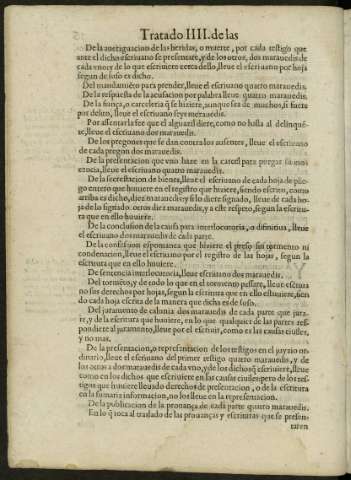 Tratado IIII. de las
De la aueriguacion de las heridas, o muerte, por cada testigo que
ante el dicho escriuano se presentare, y de los otros, dos marauedis de
cada vno: y de lo que escriuiere cerca dello, lleue el escriuano por hoja
segun de suso es dicho.
Del mandamiẽto para prender, lleue el escriuano quatro marauedis.
De la respuesta de la acusacion por palabra lleue quatro marauedis.
De la fiança, o carceleria q̃ se hiziere, aunque sea de muchos, si fuere
por delito, lleue el escriuano seys marauedis.
Por assentar la fee que el alguazil diere, como no halla al delinquẽ-
te, lleue el escriuano dos marauedis.
De los pregones que se dan contra los ausentes, lleue el escriuano
de cada pregon dos marauedis.
De la presentacion que vno haze en la carcel para purgar su ino
cencia, lleue el escriuano quatro marauedis.
De la secrestacion de bienes, lleue el escriuano de cada hoja de plie-
go entero que huuiere en el registro que hiziere, siendo escrito, como
arriba es dicho, diez marauedis: y si lo diere signado, lleue de cada ho-
ja de lo signado otros diez marauedis, y a este respeto, segun la escritu-
ra que en ello huuiere.
De la conclusion de la causa para interlocutoria, o difinitiua, lleue
el escriuano dos marauedis de cada parte.
De la confession espontanea que hiziere el preso sin tormento ni
condenacion, lleue el escriuano por el registro de las hojas, segun la
escritura que en ello huuiere.
De sentencia interlocutoria, lleue escriuano dos marauedis.
Del tormẽto, y de todo lo que en el tormento passare, lleue escriua
no sus derechos por hojas, segun la escritura que en ello estuuiere, sien
do cada hoja escrita de la manera que dicha es de suso.
Del juramento de calunia dos marauedis de cada parte que jura-
re, y de la escritura que huuiere, en lo que qualquier de las partes res-
pondiere al juramento, lleue por el escriuir, como es las causas ciuiles,
y no mas.
De la presentacion, o representacion de los testigos en el juyzio or-
dinario, lleue el escriuano del primer testigo quatro marauedis, y de
los otros a dos marauedis de cada vno, y de los dichos q̃ escriuiere, lleue
como en los dichos que escriuiere en las causas ciuiles: pero de los tes-
tigos que huuiere lleuado derechos de presentacion, o de la escritura
en la sumaria informacion, no los lleue en la representacion.
De la publicacion de la prouança de cada parte quatro marauedis.
En lo q̃ toca al traslado de las prouanças y escrituras que se presen-
taren